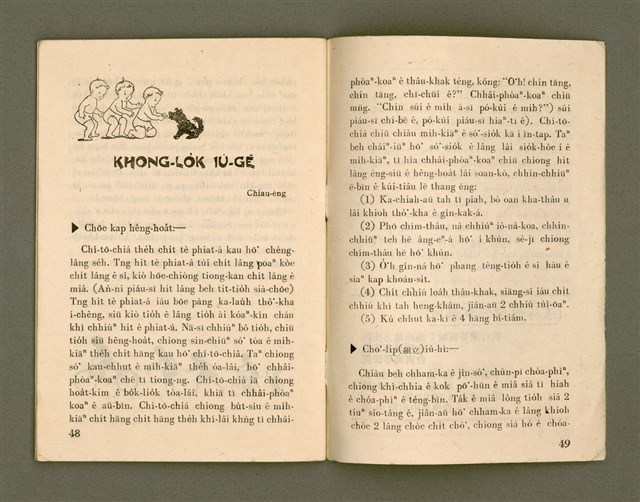 KHONG-LO̍K IÛ-GĒ
Chiau-êng
▶ Chōe kap hêng-hoa̍t:—
Chí-tō-chiá the̍h chit tè phiat-á kau hō͘ chèng-
lâng se̍h. Tng hit tè phiat-á tùi chit lâng poaⁿ kòe
chit lâng ê sî, kiò hōe-chiòng tiong-kan chit lâng ê
miâ. (Án-ni piáu-sī hit lâng beh tit-tio̍h siá-chōe)
Tng hit tè phiat-á iáu bōe pàng ka-lau̍h thô͘-kha
í-chêng, siū kiò tio̍h ê lâng tio̍h ài kóaⁿ-kín cháu
khì chhiúⁿ hit ê phiat-á. Nā-sī chhiúⁿ bô tio̍h, chiū
tio̍h siū hêng-hoa̍t, chiong sin-chiūⁿ só͘ tòa ê mi̍h-
kiāⁿ the̍h chit hāng kau hō͘ chí-tō-chiá. Taⁿ chiong
só͘ kau-chhut ê mi̍h-kiāⁿ the̍h óa-lâi, hō͘ chhâi-
phòaⁿ-koaⁿ chē tī tiong-ng. Chí-tō-chiá iā chiong
hoa̍t-kim ê bo̍k-lio̍k tòa-lâi, khiā tī chhâi-phòaⁿ
koaⁿ ê āu-bīn. Chí-tō-chiá chiong bu̍t-siu ê mi̍h-
kiāⁿ chi̍t hāng chi̍t hāng the̍h khí-lâi khǹg tī chhâi-
48
phòaⁿ-koaⁿ ê thâu-khak téng, kóng: “Óh! chin tāng,
chin tāng, chī-chúi ê?” Chhâi-phòaⁿ-koaⁿ chiū
mn̄g. “Chin súi ê mih á-sī pó-kùi ê mih?”) súi
piáu-sī chí-bē ê, pó-kùi piáu-sī hiaⁿ-tī ê). Chí-tō-
chiá chiū chiàu mi̍h-kiāⁿ ê só͘-sio̍k kā i ìn-tap. Taⁿ
beh chhâiⁿ-iūⁿ hō͘ só͘-sio̍k ê lâng lâi sio̍k-hôe i ê
mi̍h-kiāⁿ, tī hia chhâi-phòaⁿ-koaⁿ chiū chiong hit
lâng èng-siū ê hêng-hoa̍t lâi soan-kò, chhin-chhiūⁿ
ē-bīn ê kúi-tiâu lē thang ēng:
(1) Ka-chiah-aū tah tī piah, bô oan kha-thâu u
lâi khioh thô͘-kha ê gín-kak-á.
(2) Phō chím-thâu, ná chhiūⁿ iô-nâ-koa, chhin-
chhiūⁿ teh hē âng-eⁿ-á hō͘ i khùn, sè-jī chiong
chím-thâu hē hō͘ khùn.
(3) O̍h gín-ná hō͘ phang tèng-tio̍h ê sî háu ê
siaⁿ kap khoán-sit.
(4) Chit chhiú loa̍h thâu-khak, siāng-sî iáu chit
chhiú khì tah heng-khám, jiân-aū 2 chhiú tùi-ōaⁿ.
(5) Kú chhut ka-kī ê 4 hāng bí-tiám.
▶ Cho͘-li̍p(組立)iû-hì:—
Chiàu beh chham-ka ê jîn-sò͘, chún-pī chóa-phìⁿ,
chiong khì-chhia ê kok pō͘-hūn ê miâ siá tī hia̍h
ê chóa-phìⁿ ê téng-bīn. Ta̍k ê miâ lóng tio̍h siá 2
tiuⁿ sio-tâng ê, jiân-aū hō͘ chham-ka ê lâng khioh
chòe 2 lâng chòe chi̍t chó͘, chiong siá hó ê chóa-
49